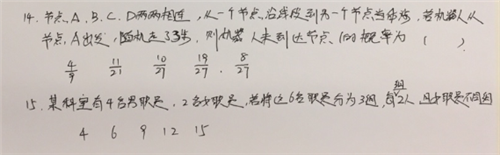 14. 节点A、B、C、D两两相连,从一个节点沿线段到另一个节点当做1步,若机器人从
节点A出发,随机走了3步,则机器人未到达节点C的概率为( )
4/9 11/21 10/27 19/27 8/27
15. 某科室有4名男职员,2名女职员,若将这6名职员分为3组,每组2人,且女职员不同组
4 6 9 12 15